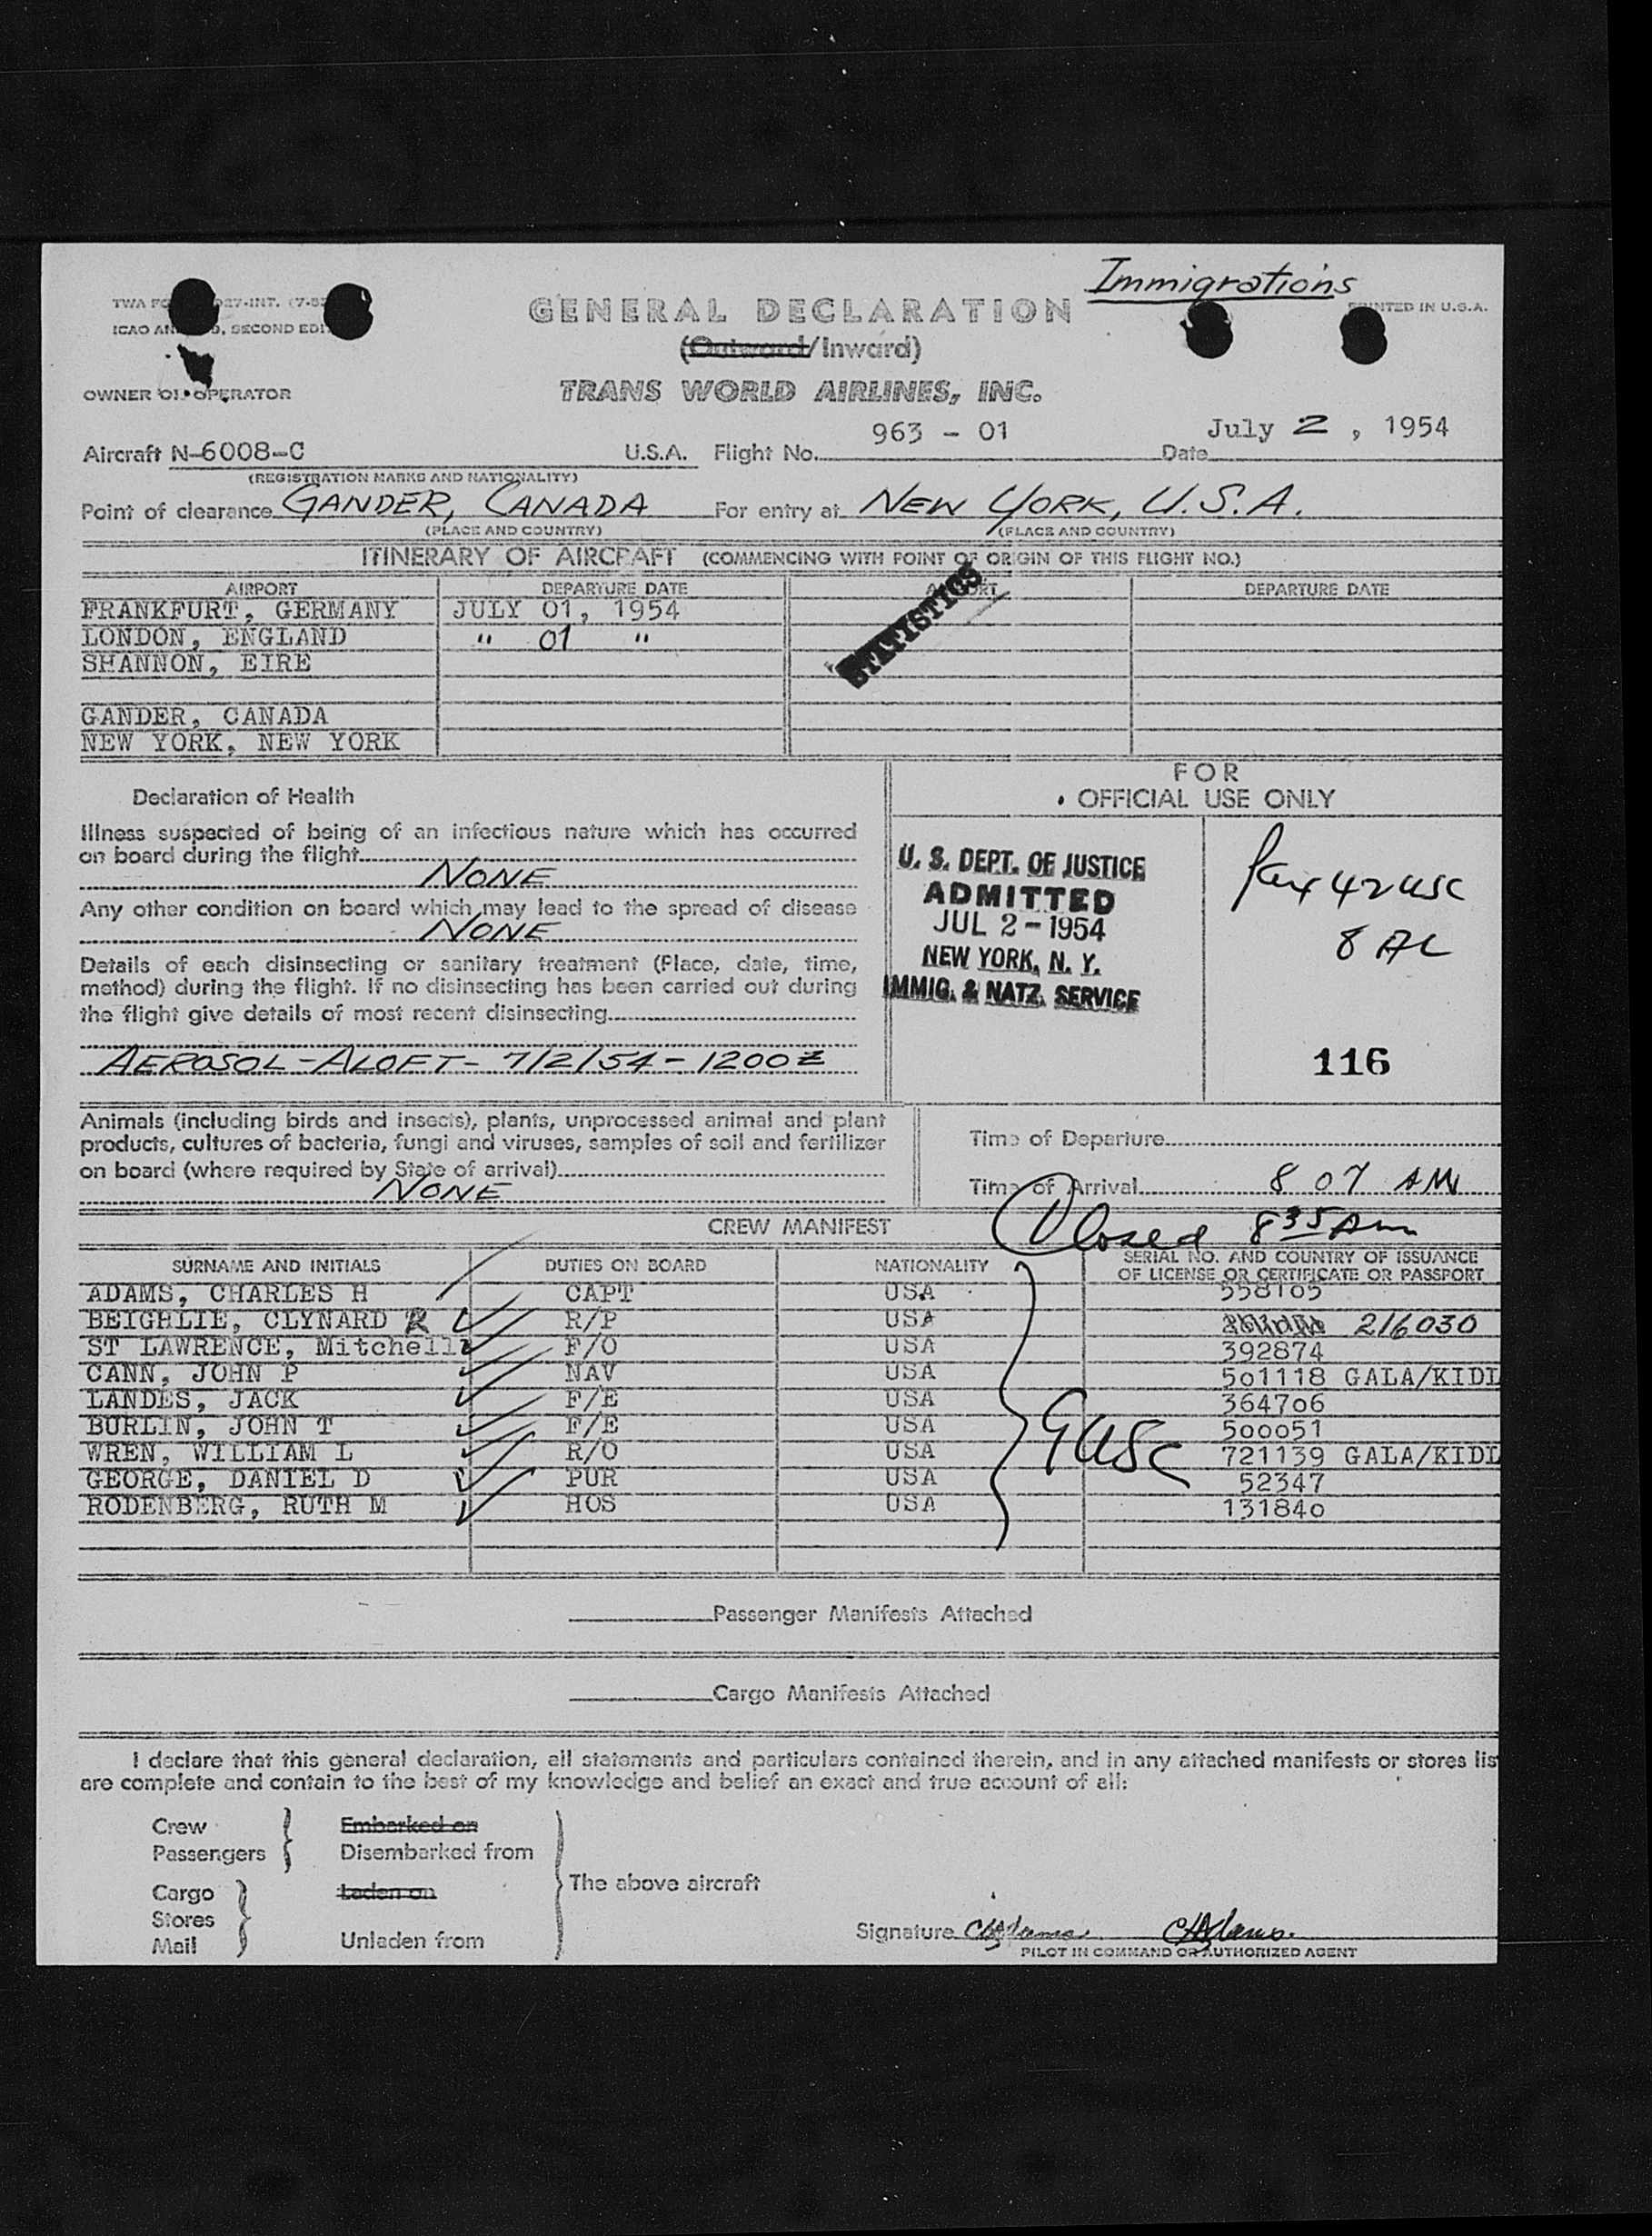 Immigrations
TWA FO 27-INT. (7-5
ICAO AN 9, SECOND EDI
PRINTED IN U.S.A.
GENERAL DECLARATION
(Outward/Inward)
OWNER OR OPERATOR
TRANS WORLD AIRLINES, INC.
Aircraft N-6008-C U.S.A. Flight No. 963 - 01 Date July 2, 1954
(REGISTRATION MARKS AND NATIONALITY)
Point of clearance GANDER, CANADA For entry at NEW YORK, U.S.A.
(PLACE AND COUNTRY) (PLACE AND COUNTRY)
ITINERARY OF AIRCRAFT (COMMENCING WITH POINT OF ORIGIN OF THIS FLIGHT NO.)
AIRPORT DEPARTURE DATE AIRPORT DEPARTURE DATE
FRANKFURT, GERMANY JULY 01, 1954
LONDON, ENGLAND " 01 "
SHANNON, EIRE
STATISTICS
GANDER, CANADA
NEW YORK, NEW YORK
Declaration of Health
Illness suspected of being of an infectious nature which has occurred
on board during the flight
NONE
Any other condition on board which may lead to the spread of disease
NONE
Details of each disinsecting or sanitary treatment (Place, date, time,
method) during the flight. If no disinsecting has been carried out during
the flight give details of most recent disinsecting
AEROSOL-ALOFT-7/2/54-1200Z
FOR
OFFICIAL USE ONLY
U. S. DEPT. OF JUSTICE
ADMITTED
JUL 2-1954
NEW YORK, N. Y.
IMMIG. & NATZ. SERVICE
Pax 42 USC
8 AL
116
Animals (including birds and insects), plants, unprocessed animal and plant
products, cultures of bacteria, fungi and viruses, samples of soil and fertilizer
on board (where required by State of arrival)
NONE
Time of Departure
Time of Arrival 8 07 AM
Closed 8 35 Am
CREW MANIFEST
SURNAME AND INITIALS DUTIES ON BOARD NATIONALITY SERIAL NO. AND COUNTRY OF ISSUANCE
OF LICENSE OR CERTIFICATE OR PASSPORT
ADAMS, CHARLES H CAPT USA 558105
BEIGHLIE, CLYNARD R R/P USA 216030
ST LAWRENCE, Mitchell F/O USA 392874
CANN, JOHN P NAV USA 501118 GALA/KIDL
LANDES, JACK F/E USA 364706
BURLIN, JOHN T F/E USA 500051
WREN, WILLIAM L R/O USA 721139 GALA/KIDL
GEORGE, DANIEL D PUR USA 52347
RODENBERG, RUTH M HOS USA 131840
9 USC
Passenger Manifests Attached
Cargo Manifests Attached
I declare that this general declaration, all statements and particulars contained therein, and in any attached manifests or stores lis
are complete and contain to the best of my knowledge and belief an exact and true account of all:
Crew Embarked on
Passengers Disembarked from
The above aircraft
Cargo Laden on
Stores
Mail Unladen from
Signature CHAdams CHAdams
PILOT IN COMMAND OR AUTHORIZED AGENT